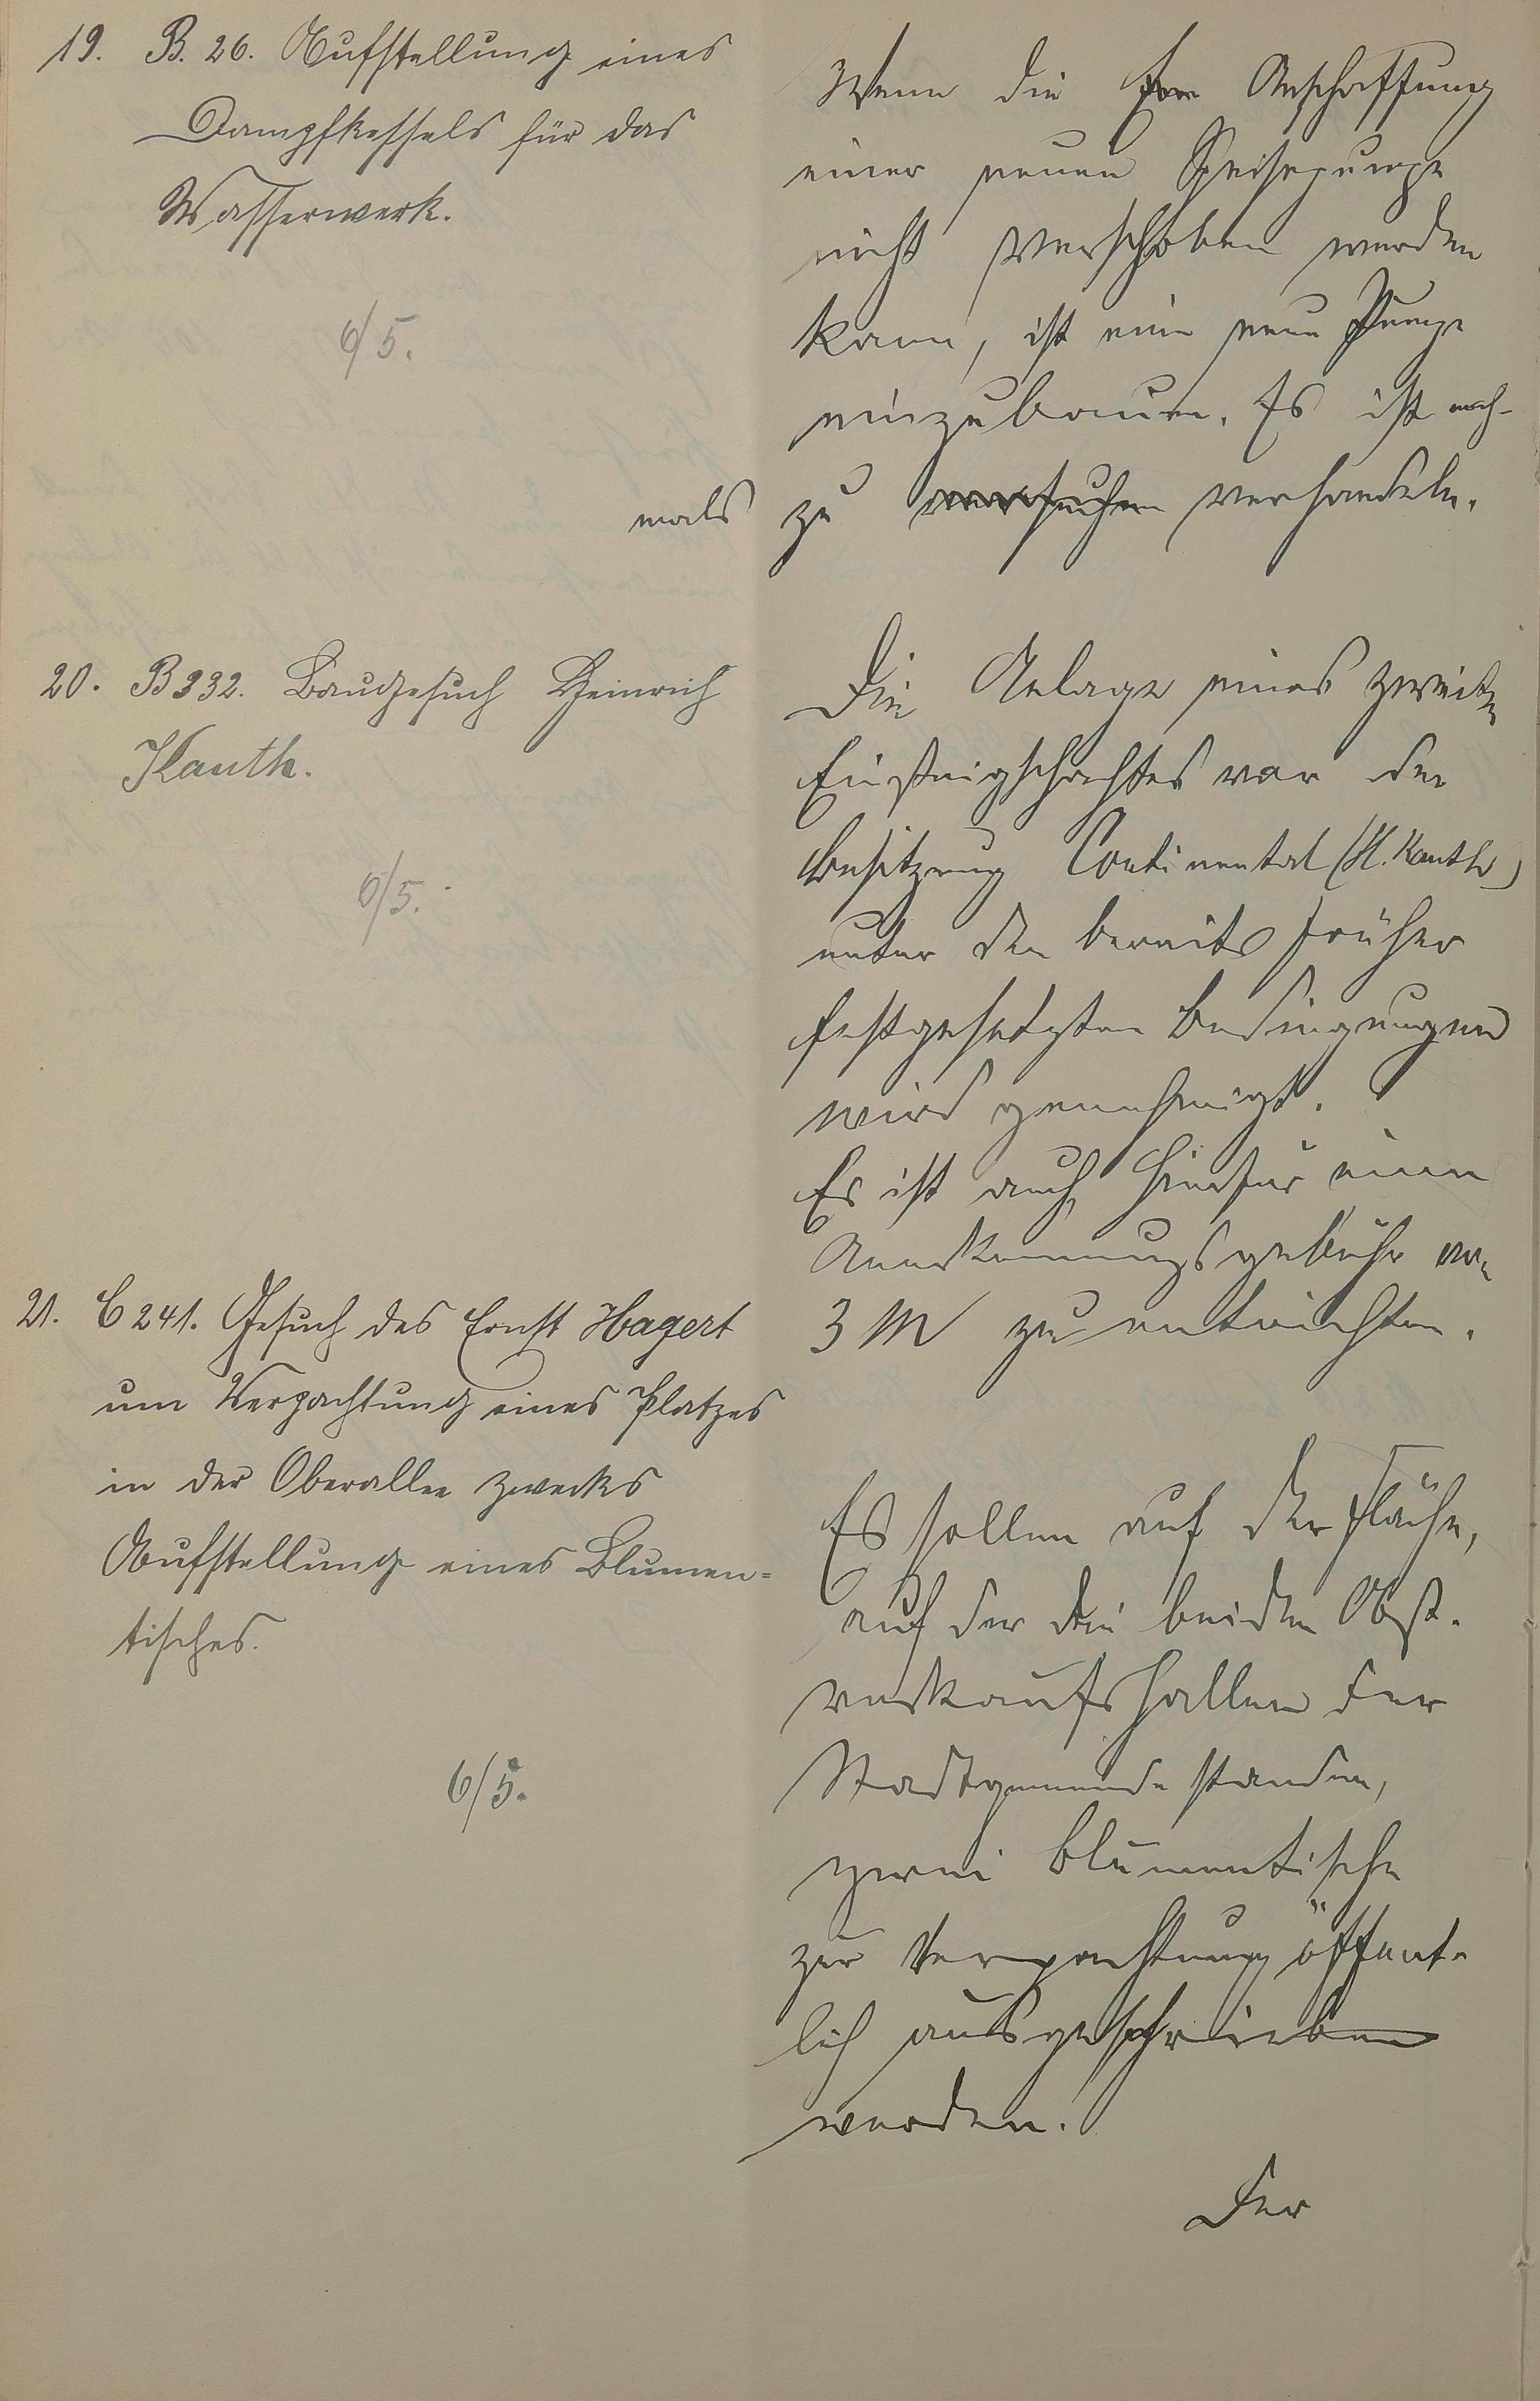 19. B. 26. Aufstellung eines
Dampfkessels für das
Wasserwerk.
6/5.
Wenn die Anschaffung
einer neuen Speisepumpe
nicht verschoben werden
kann, ist eine neue Pumpe
einzubauen. Es ist noch-
mals zu versuchen verhandeln.
20. B 332. Baugesuch Heinrich
Kauth.
6/5.
Die Anlage eines zweiten
Einsteigschachtes vor der
Besitzung Continental (H. Kauth)
unter den bereits früher
festgesetzten Bedingungen
wird genehmigt.
Es ist auch hierfür eine
Anerkennungsgebühr von
3 M zu entrichten.
21. C 241. Gesuch des Ernst Hagert
um Verpachtung eines Platzes
in der Oberallee zwecks
Aufstellung eines Blumen=
tisches.
6/5.
Es sollen auf der Fläche,
auf der die beiden Obst-
verkaufshallen der
Stadtgemeinde standen,
zwei Blumentische
zur Verpachtung öffent-
lich ausgeschrieben
werden.
Der